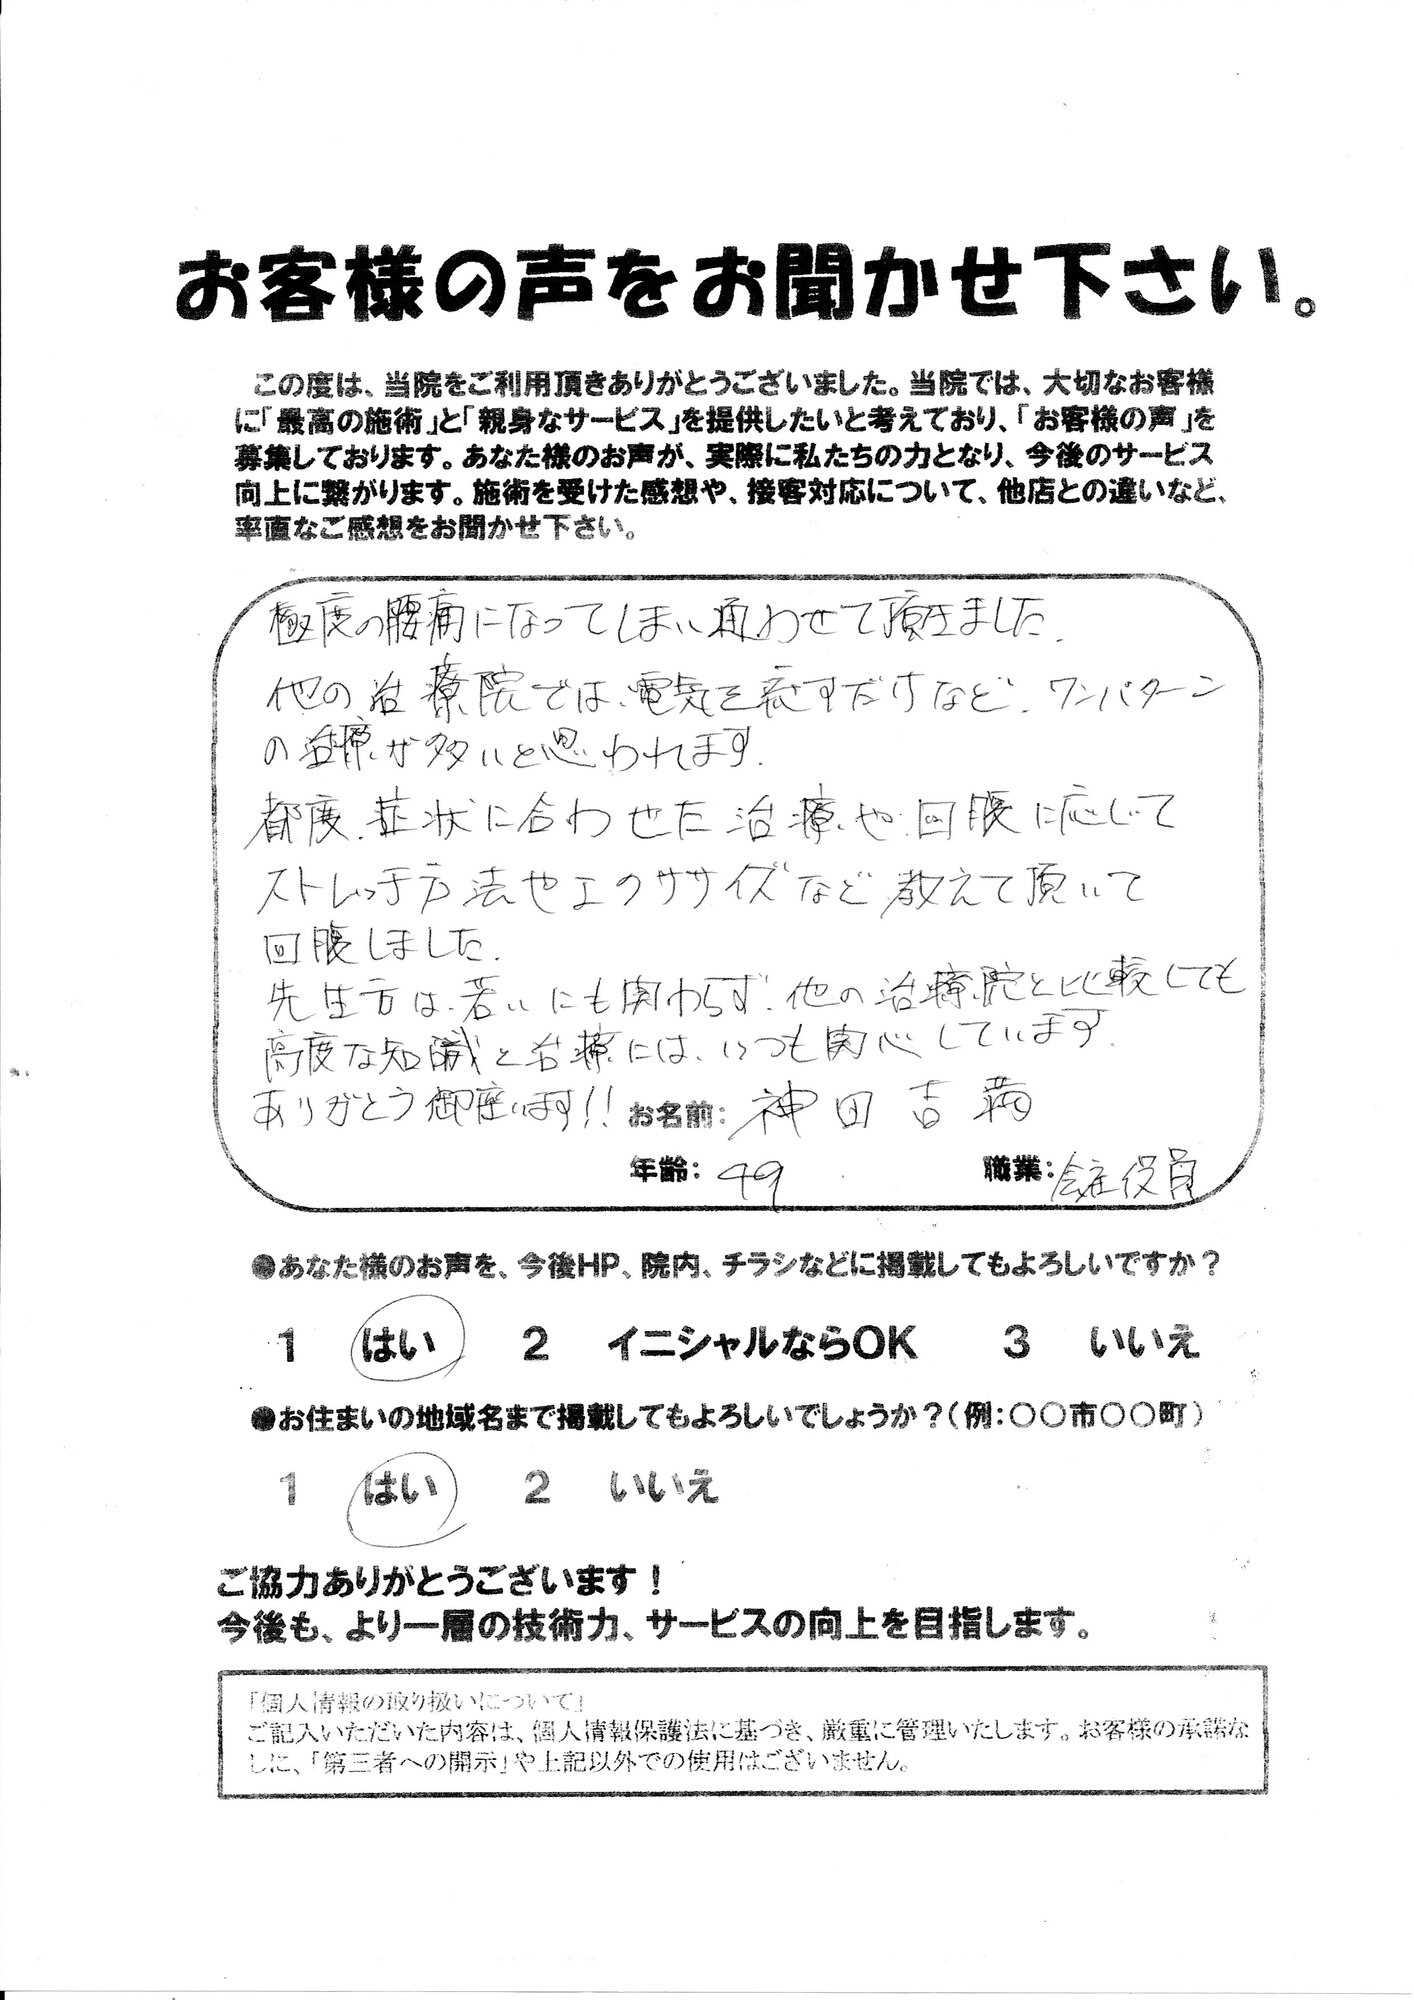 お客様の声をお聞かせ下さい。
この度は、当院をご利用頂きありがとうございました。当院では、大切なお客様
に「最高の施術」と「親身なサービス」を提供したいと考えており、「お客様の声」を
募集しております。あなた様のお声が、実際に私たちの力となり、今後のサービス
向上に繋がります。施術を受けた感想や、接客対応について、他店との違いなど、
率直なご感想をお聞かせ下さい。
極度の腰痛になってしまい通わせて頂きました.
他の治療院では、電気を流すだけなど、ワンパターン
の治療が多いと思われます.
都度、症状に合わせた治療や、回腹に応じて
ストレッチ方法やエクササイズなど教えて頂いて
回腹しました.
先生方は、若いにも関わらず、他の治療院と比較しても
高度な知識と治療には、いつも関心しています.
ありがとう御座います!!
お名前: 神田吉
年齢: 49 職業: 会社役員
●あなた様のお声を、今後HP、院内、チラシなどに掲載してもよろしいですか?
1 はい 2 イニシャルならOK 3 いいえ
●お住まいの地域名まで掲載してもよろしいでしょうか?(例:○○市○○町)
1 はい 2 いいえ
ご協力ありがとうございます!
今後も、より一層の技術力、サービスの向上を目指します。
「個人情報の取り扱いについて」
ご記入いただいた内容は、個人情報保護法に基づき、厳重に管理いたします。お客様の承諾な
しに、「第三者への開示」や上記以外での使用はございません。